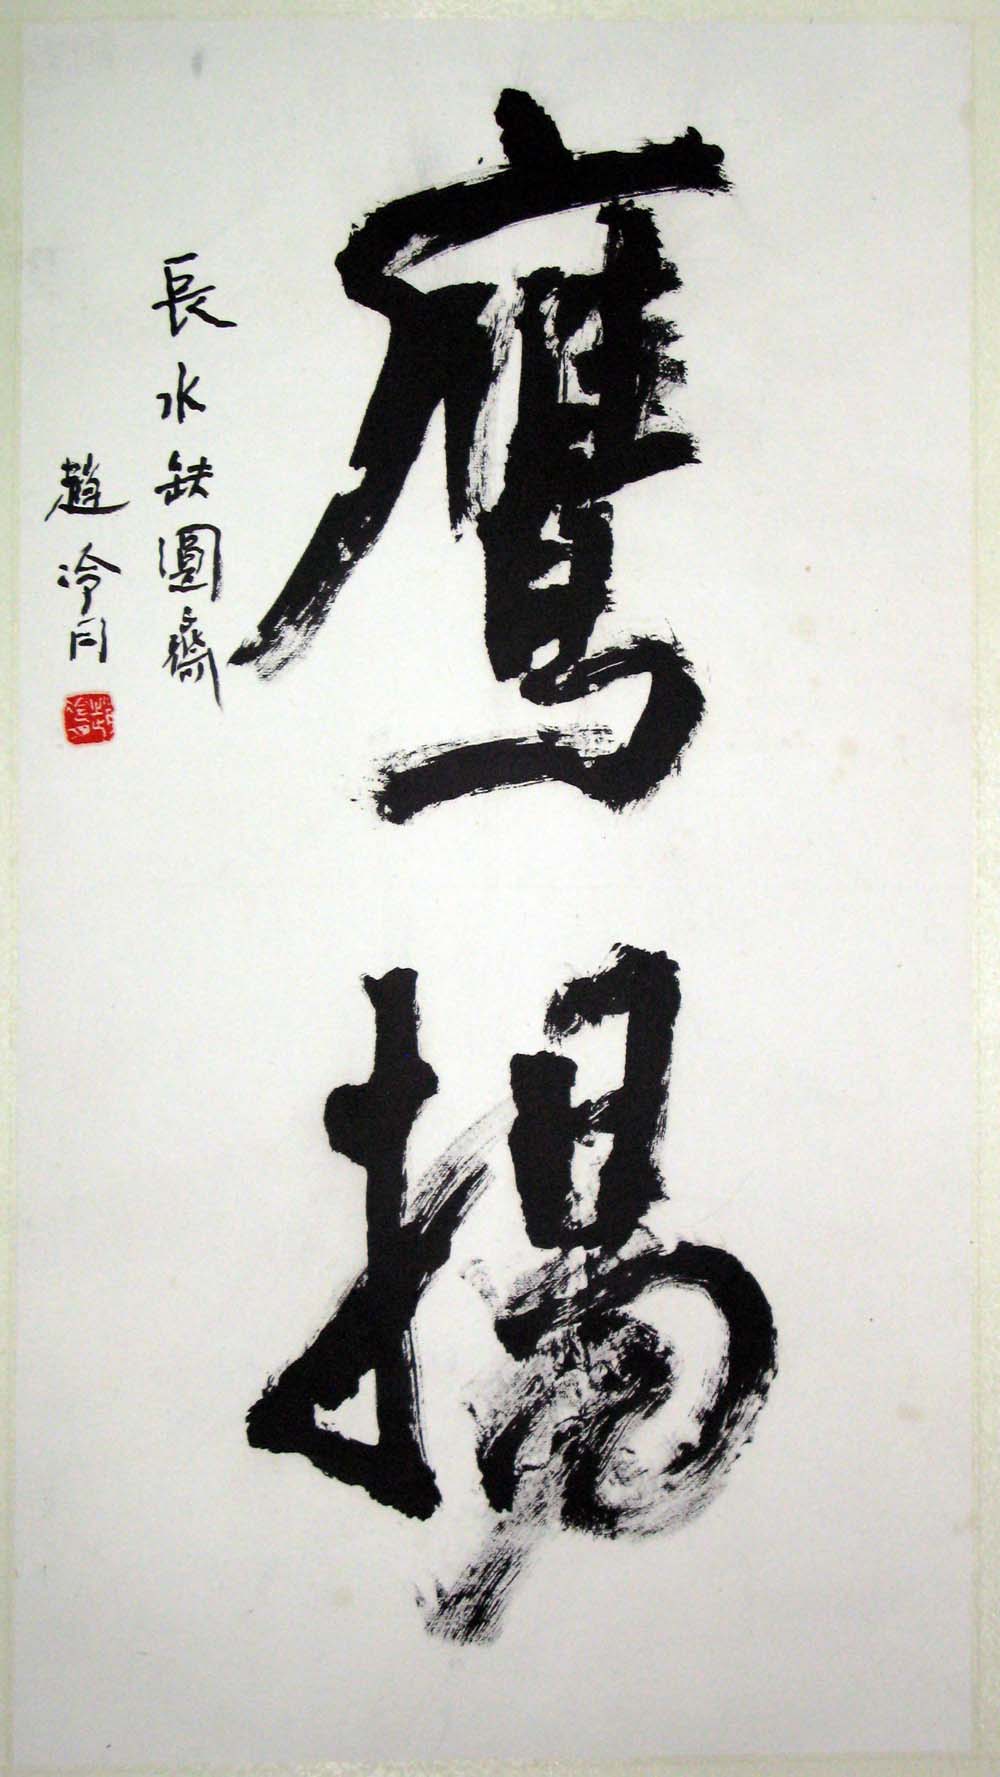 鷹揚
長水缺圓齋
趙冷月